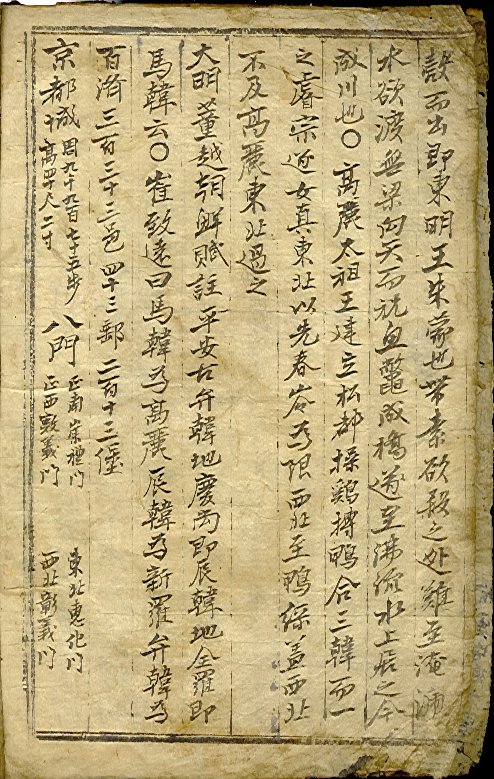 殼而出即東明王朱蒙也帶素欲殺之处難至淹㴲
水欲渡無梁向天而祝魚鼈成橋遂至沸流水上居之今
成川也〇高麗太祖王建立松都操鷄搏鴨合三韓而一
之睿宗逐女真東北以先春岺爲限西北至鴨綠盖西北
不及高麗東北過之
大明董越朝鮮賦註平安古弁韓地慶尚即辰韓地全羅即
馬韓云〇崔致遠曰馬韓爲高麗辰韓爲新羅弁韓爲
百済三百三十三邑四十三郵二百十三堡
京都城周九千九百七十五步高四十尺二寸八門正南崇禮門正西敦義門東北惠化門西北彰義門